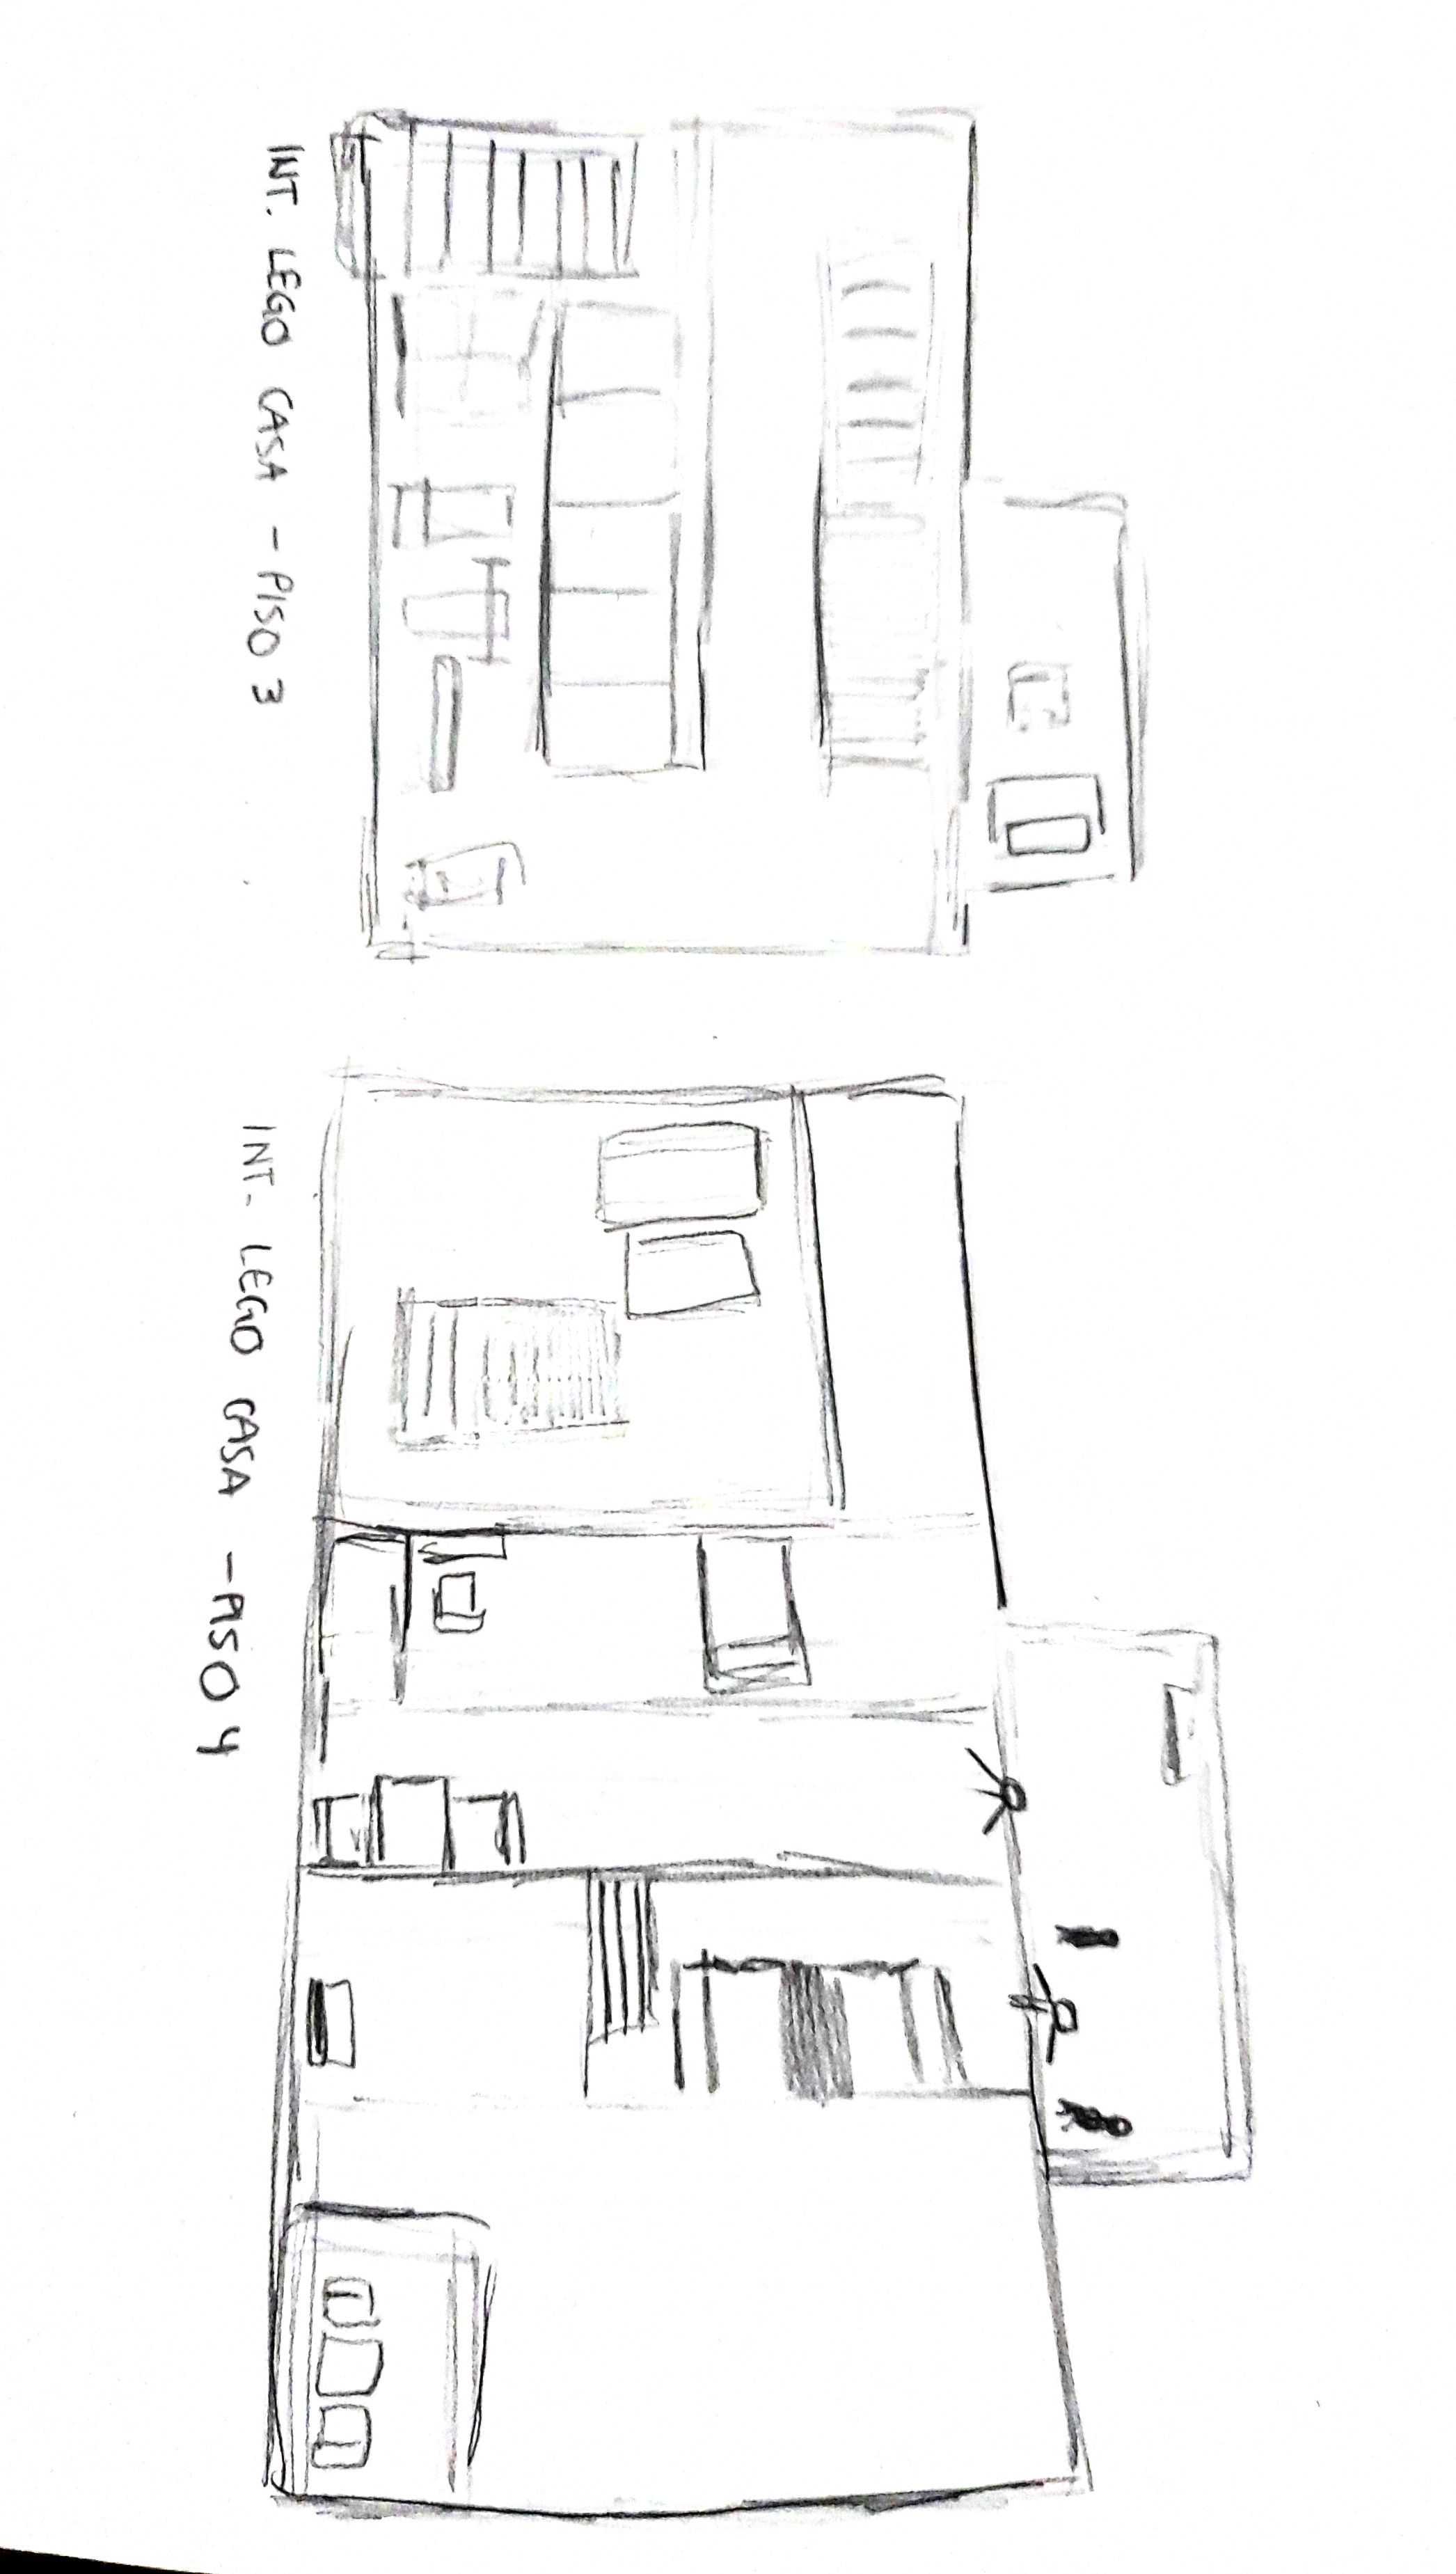 INT. LEGO CASA - PISO 3
INT. LEGO CASA - PISO 4